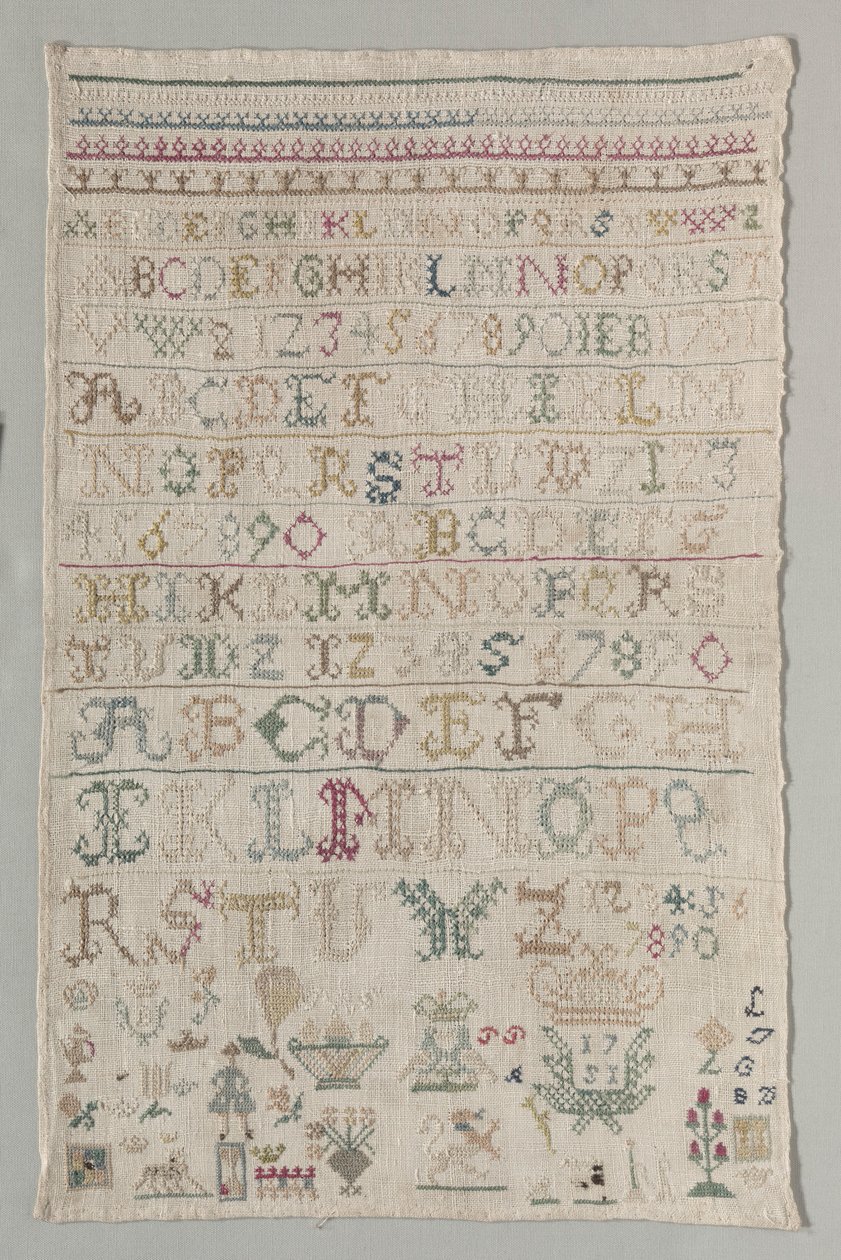 A B C D E F G H I K L M N O P Q R S T V W Z
A B C D E F G H I K L M N O P Q R S T
V W Z 1 2 3 4 5 6 7 8 9 0 I E B 1751
A B C D E F G H I K L M
N O P Q R S T U W Z 1 2 3
4 5 6 7 8 9 0 A B C D E F G
H I K L M N O P Q R S
T U W Z 1 2 3 4 5 6 7 8 9 0
A B C D E F G H
I K L M N O P Q
R S T U W Z 1 2 3 4 5 6
7 8 9 0
17
51